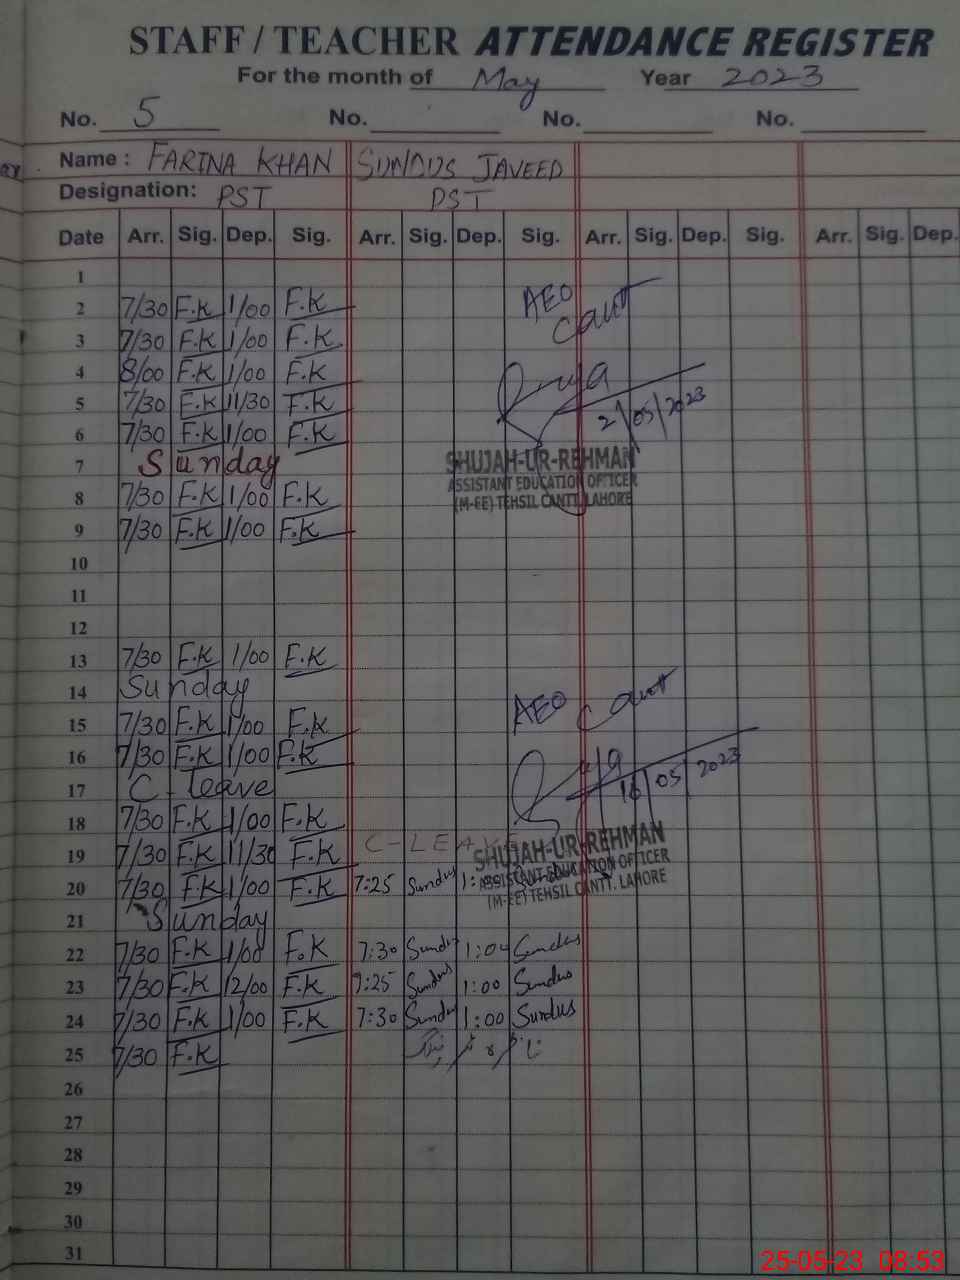 STAFF / TEACHER ATTENDANCE REGISTER
For the month of May Year 2023
No. 5 No. No. No.
Name : FARINA KHAN SUNDUS JAVEED
Designation: PST PST
Date Arr. Sig. Dep. Sig. Arr. Sig. Dep. Sig. Arr. Sig. Dep. Sig. Arr. Sig. Dep.
1
2 7/30 F.K 1/00 F.K AEO Cantt
3 7/30 F.K 1/00 F.K
4 8/00 F.K 1/00 F.K
5 7/30 F.K 11/30 F.K 2/05/2023
6 7/30 F.K 1/00 F.K
7 Sunday SHUJAH-UR-REHMAN
ASSISTANT EDUCATION OFFICER
8 7/30 F.K 1/00 F.K (M-EE) TEHSIL CANTT. LAHORE
9 7/30 F.K 1/00 F.K
10
11
12
13 7/30 F.K 1/00 F.K
14 Sunday AEO Cantt
15 7/30 F.K 1/00 F.K
16 7/30 F.K 1/00 F.K 16/05/2023
17 C-leave
18 7/30 F.K 1/00 F.K
19 7/30 F.K 11/30 F.K C-LEAVE SHUJAH-UR-REHMAN
ASSISTANT EDUCATION OFFICER
20 7/30 F.K 1/00 F.K 7:25 Sundus (M-EE) TEHSIL CANTT. LAHORE
21 Sunday
22 7/30 F.K 1/00 F.K 7:30 Sundus 1:00 Sundus
23 7/30 F.K 12/00 F.K 7:25 Sundus 1:00 Sundus
24 7/30 F.K 1/00 F.K 7:30 Sundus 1:00 Sundus
25 7/30 F.K
26
27
28
29
30
31
25-05-23 08:53